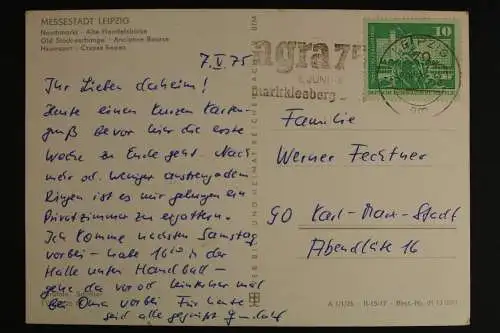 MESSESTADT LEIPZIG
Naschmarkt - Alte Handelsbörse
Old Stock-exchange · Ancienne Bourse
7. V. 75
Ihr Lieben daheim!
Heute einen kurzen Karten-
gruß bevor hier die erste
Woche zu Ende geht. Nach
mehr od. weniger anstrengendem
Ringen ist es mir gelungen ein
Privatzimmer zu ergattern.
Ich komme nächsten Samstag
vorbei - habe 16⁰⁰ in der
Halle unten Handball -
gehe da vorher mal
bei Oma vorbei. Für heute
seid alle gegrüßt
agra 75
JUNI
markkleeberg
LEIPZIG
10
Familie
Werner Fechtner
90 Karl-Marx-Stadt
Abendleite 16
BILD UND HEIMAT REICHENBACH